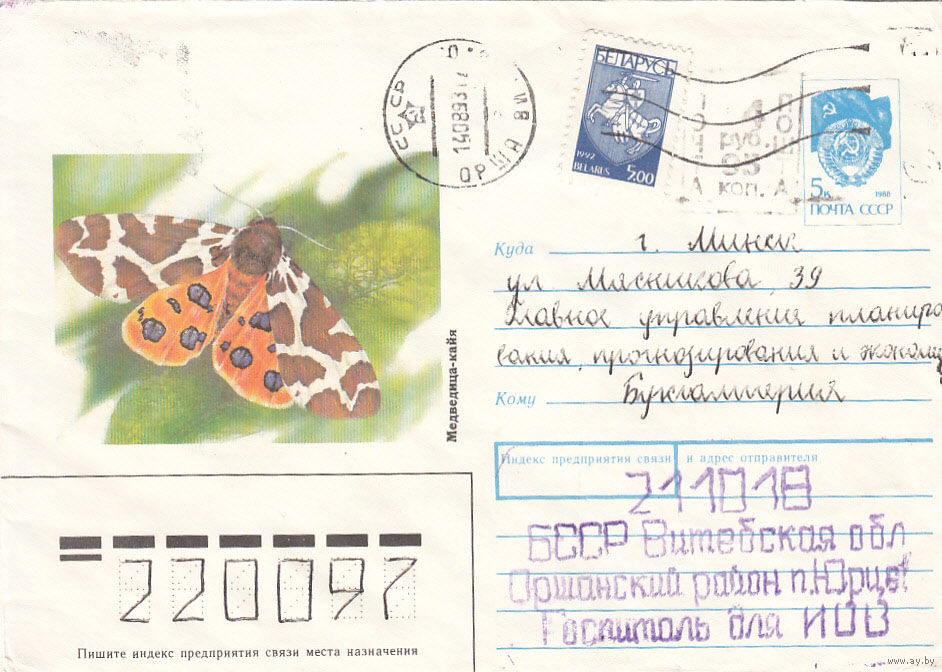 СССР
140893
ОРША
БЕЛАРУСЬ
1992
BELARUS 5,00
руб.
коп.
5к
1988
ПОЧТА СССР
Куда г. Минск
ул. Мясникова, 39
Главное управления планиро
вания, прогнозирования и эконом
Кому Бухгалтерия
Медведица-кайя
Индекс предприятия связи и адрес отправителя
211018
БССР Витебская обл
Оршанский район п.Юрцев
Госпиталь для ИОВ
220097
Пишите индекс предприятия связи места назначения
www.ay.by